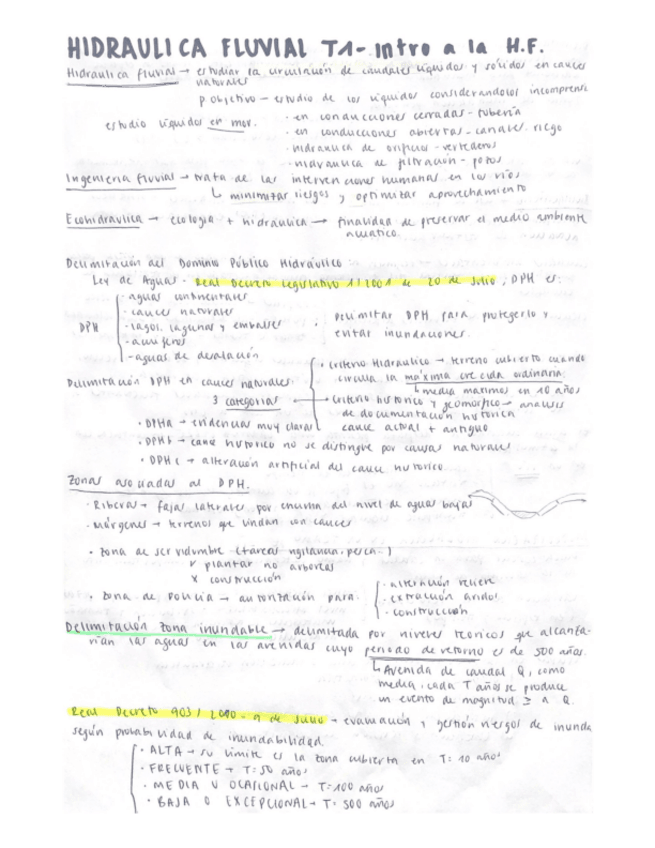 HIDRAULICA FLUVIAL T1- Intro a la H.F.
Hidráulica fluvial → estudiar la circulación de caudales líquidos y sólidos en cauces
naturales
objetivo - estudio de los líquidos considerandolos incompresi
estudio líquidos en mov.
· en conducciones cerradas - tubería
· en conducciones abiertas - canales. riego
· hidráulica de orificios - vertederos
· hidráulica de filtración - pozos
Ingeniería fluvial → trata de las intervenciones humanas en los ríos
↳ minimizar riesgos y optimizar aprovechamiento
Ecohidráulica → ecología + hidráulica → finalidad de preservar el medio ambiente
acuático.
Delimitación del Dominio Público Hidráulico:
Ley de Aguas. Real Decreto Legislativo 1/2001 de 20 de Julio, DPH es:
DPH
· aguas continentales
· cauces naturales
· lagos, lagunas y embalses
· acuíferos
· aguas de desalación
Delimitar DPH para protegerlo y
evitar inundaciones.
Delimitación DPH en cauces naturales:
3 categorías
· criterio Hidráulico → terreno cubierto cuando
circula la máxima crecida ordinaria
↳ media máximos en 10 años
· criterio histórico y geomórfico → análisis
de documentación histórica
cauce actual + antiguo
· DPHa → evidencias muy claras
· DPHb → cauce histórico no se distingue por causas naturales
· DPHc → alteración artificial del cauce histórico.
Zonas asociadas al DPH.
· Riberas → fajas laterales por encima del nivel de aguas bajas
· Márgenes → terrenos que lindan con cauces
· Zona de servidumbre (tareas vigilancia, pesca..)
✓ plantar no arboreas
x construcción
· Zona de Policía → autorización para:
· alteración relieve
· extracción áridos
· construcción
Delimitación zona inundable → delimitada por niveles teóricos que alcanza-
rían las aguas en las avenidas cuyo período de retorno es de 500 años.
↳ Avenida de caudal Q, como
media, cada T años se produce
un evento de magnitud ≥ a Q.
Real Decreto 903/2010 - 9 de Julio → evaluación y gestión riesgos de inunda
según probabilidad de inundabilidad
· ALTA → su límite es la zona cubierta en T= 10 años
· FRECUENTE → T= 50 años
· MEDIA U OCASIONAL → T= 100 años
· BAJA O EXCEPCIONAL → T= 500 años